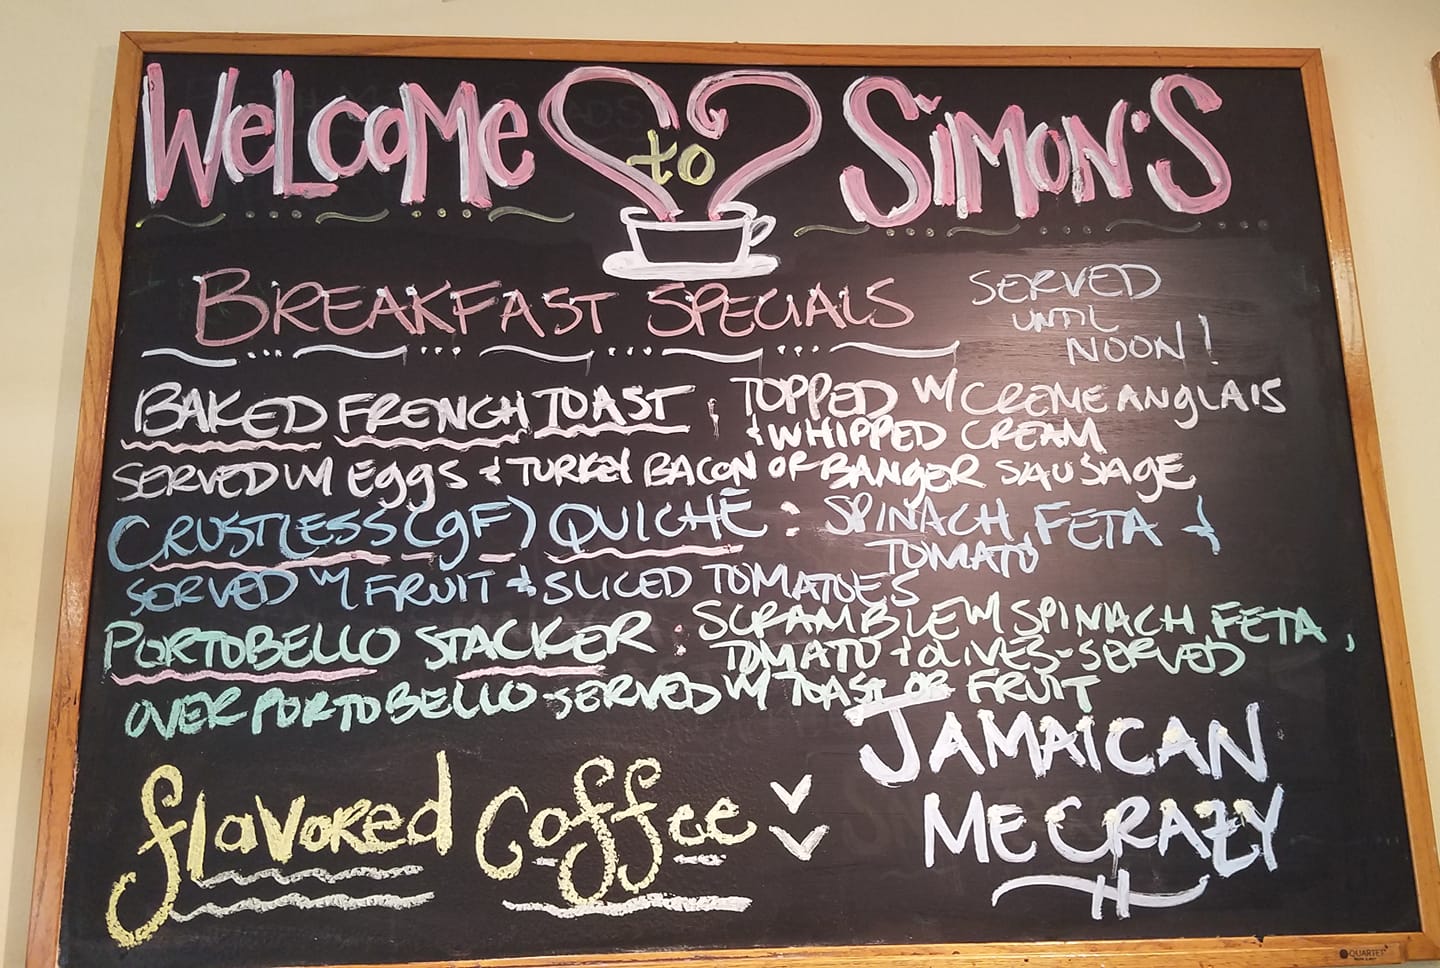 Welcome to Simon's
BREAKFAST SPECIALS
SERVED
UNTIL
NOON!
BAKED FRENCH TOAST : TOPPED W/ CREME ANGLAIS
& WHIPPED CREAM
SERVED W/ EGGS & TURKEY BACON OR BANGER SAUSAGE
CRUSTLESS (GF) QUICHE : SPINACH, FETA &
TOMATO
SERVED W/ FRUIT & SLICED TOMATOES
PORTOBELLO STACKER : SCRAMBLE W/ SPINACH FETA,
TOMATO & OLIVES - SERVED
OVER PORTOBELLO - SERVED W/ TOAST OR FRUIT
flavored Coffee
JAMAICAN
ME CRAZY
QUARTET